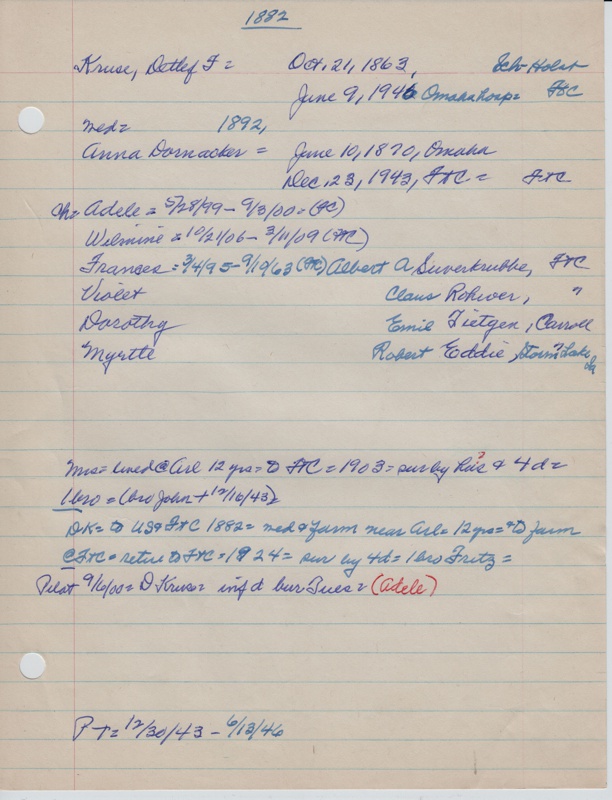 1882
Kruse, Detlef F = Oct. 21, 1863, Sch-Holst
June 9, 1946 Omaha hosp = FtC
med = 1892,
Anna Dornacker = June 10, 1870, Omaha
Dec. 23, 1943, FtC = FtC
ch = Adele = 5/28/99 - 9/3/00 = (FC)
Wilmine = 10/21/06 - 3/11/09 (FtC)
Frances = 3/4/95 - 9/19/63 (FtC) Albert A Suverkrubbe, FtC
Violet Claus Rohwer, "
Dorothy Emil Tietgen, Carroll
Myrtle Robert Eddie, Storm Lake Ia
?
?
Mrs = lived @ Arl 12 yrs = to FtC = 1903 = sur by hus & 4 d =
1 bro = (bro John + 12/16/43) =
DK = to US & FtC 1882 = med & farm near Arl = 12 yrs = to farm
@ FtC = retire to FtC = 1924 = sur by 4d = 1 bro Fritz =
Pilot 9/6/00 = D Kruse = inf d bur Tues = (Adele)
PT = 12/30/43 - 6/13/46